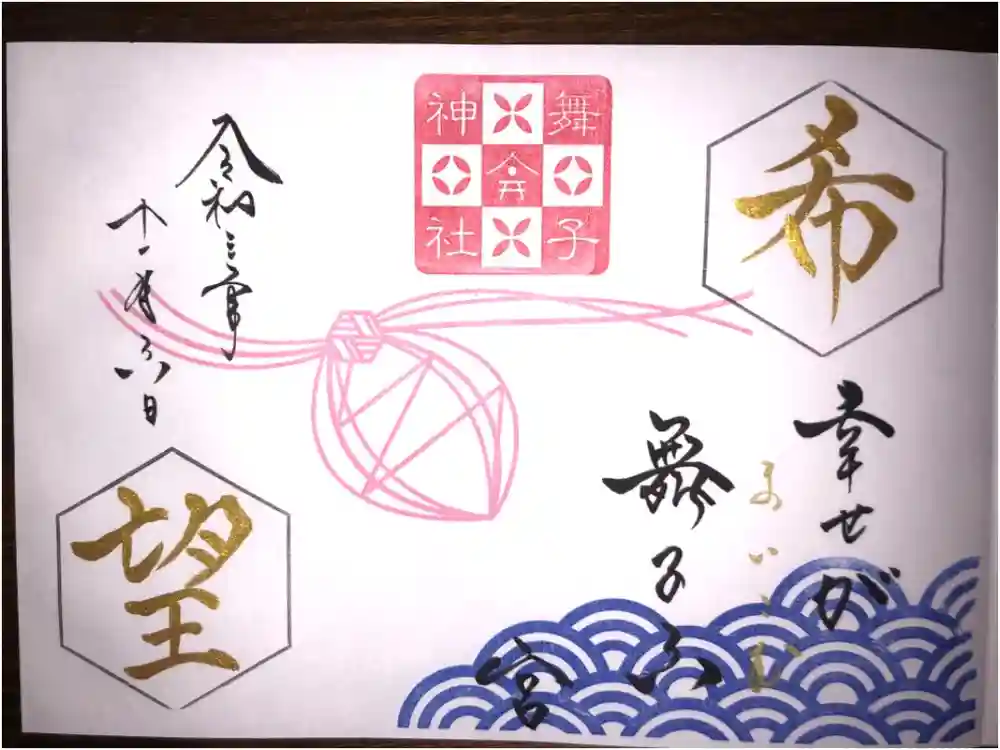 希
幸せが
まいこむ
舞子六
宮
舞子六神社
令和三年
十一月六日
望